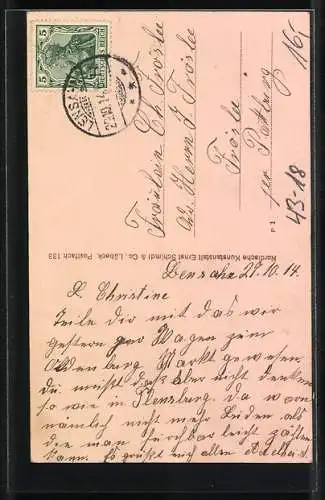 5 5
22.10.14
Fräulein Ch. Tröslee
ads. Herrn J Tröslee
Tröslee
per Pattburg
165
43-18
P 1
Nordische Kunstanstalt Ernst Schmidt & Co., Lübeck, Postfach 133
Lensahn 21.10.14.
L. Christine
Teile dir mit das wir
gestern per Wagen zum
Oldenburg Markt gewesen.
Du mußt das aber nicht denken
so wie in Flensburg. Da waren
nämlich nicht mehr Buden als
die man furchbar leicht zählen
kann. Es grüßt euch allen